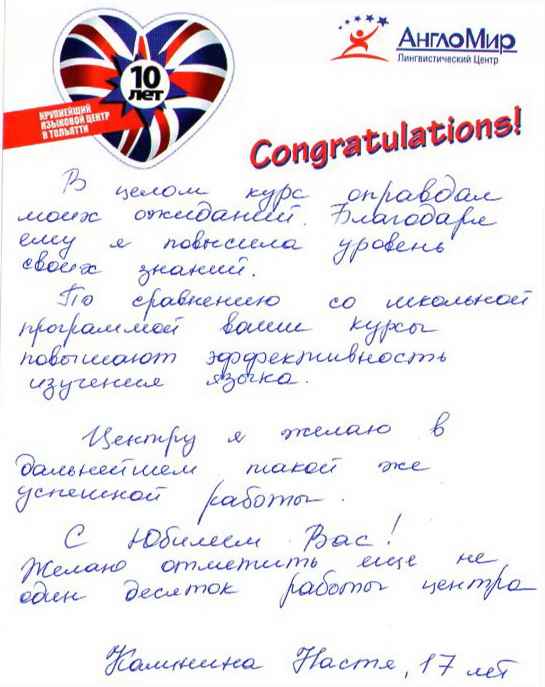 10
лет
КРУПНЕЙШИЙ
ЯЗЫКОВОЙ ЦЕНТР
В ТОЛЬЯТТИ
АнглоМир
Лингвистический Центр
Congratulations!
В целом курс оправдал
моих ожиданий. Благодаря
ему я повысила уровень
своих знаний.
По сравнению со школьной
программой ваши курсы
повышают эффективность
изучения языка.
Центру я желаю в
дальнейшем такой же
успешной работы.
С Юбилеем Вас!
Желаю отметить еще не
один десяток работы центра
Калинина Настя, 17 лет